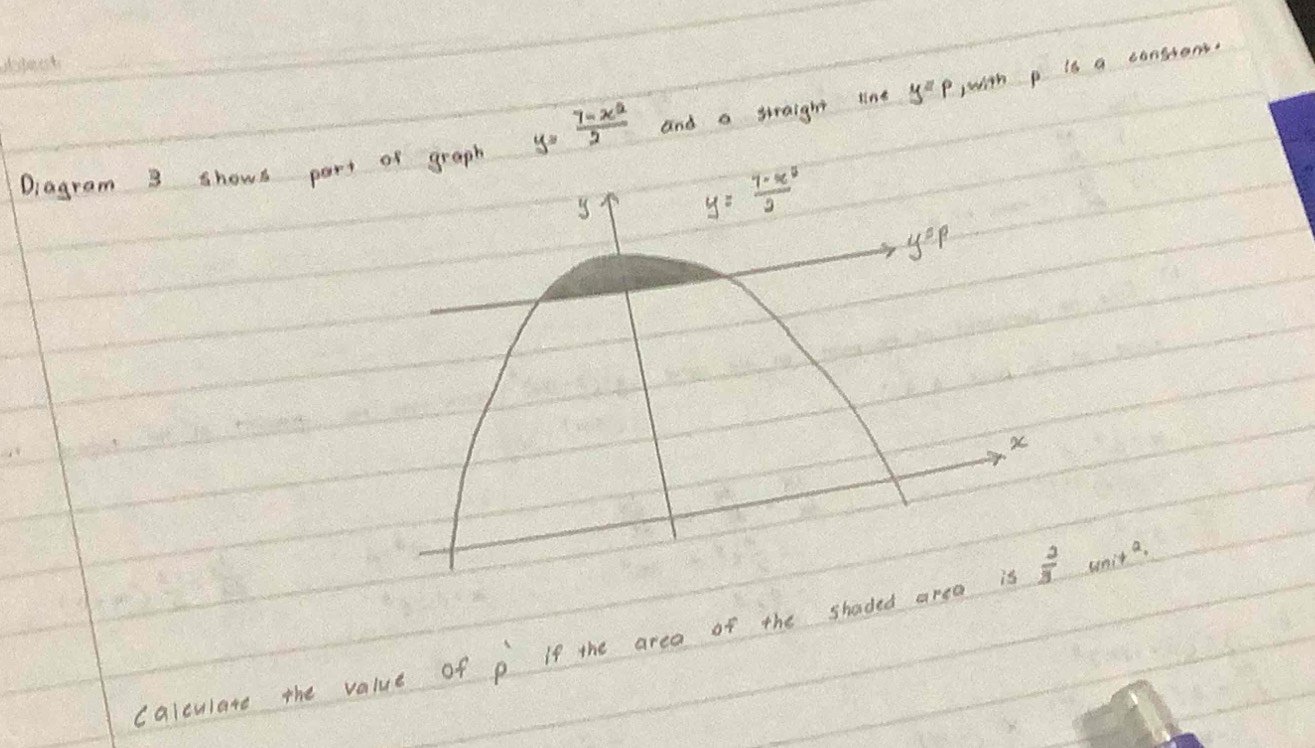 Diagram 3 shows part of graph y= \frac{7-x^2}{2} and a straight line y=p, with p is a constant.
y
y= \frac{7-x^2}{2}
y=p
x
Calculate the value of p if the area of the shaded area is \frac{2}{3} unit².